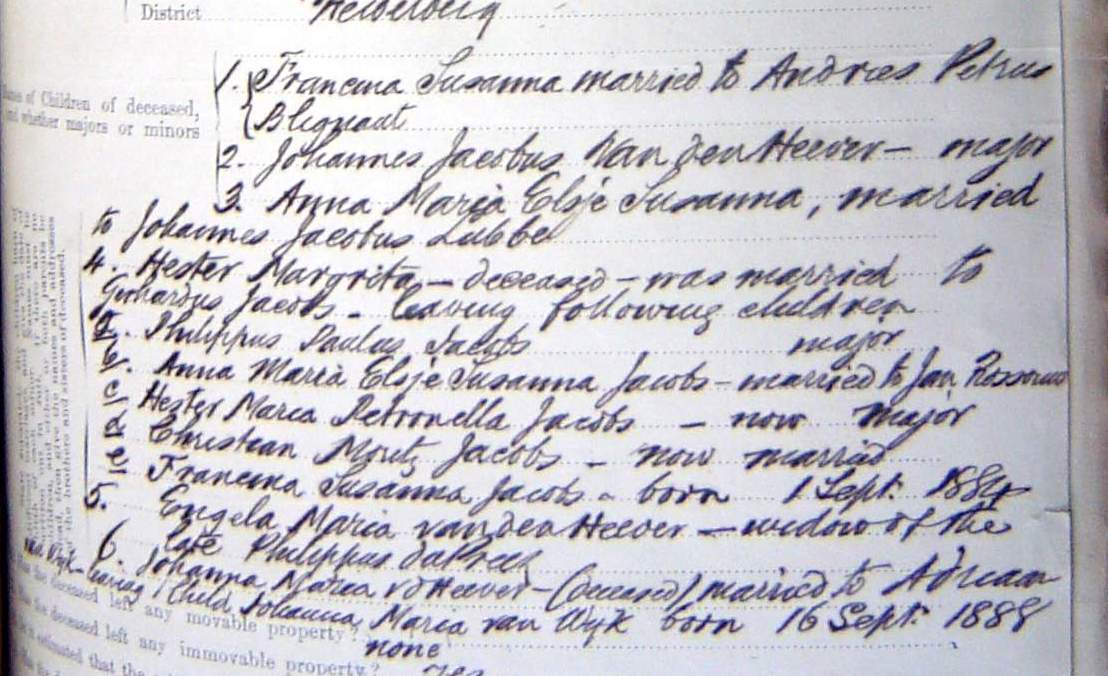 District Heidelberg
1. Francina Susanna married to Andries Petrus
Blignaut
Names of Children of deceased,
and whether majors or minors
2. Johannes Jacobus van den Heever – major
3. Anna Maria Elsje Susanna, married
to Johannes Jacobus Lubbe
4. Hester Margrita – deceased – was married to
Gerhardus Jacobs – leaving following children
a. Philippus Paulus Jacobs major
b. Anna Maria Elsje Susanna Jacobs – married to Jan Rossouw
c Hester Maria Petronella Jacobs – now major
d Christian Jacobs – now married
e Francina Susanna Jacobs – born 1 Sept. 1884
5. Engela Maria van den Heever – widow of the
late Philippus duPreez
6. Johanna Maria vd Heever – (deceased) married to Adriaan
van Wyk – leaving 1 child Johanna Maria van Wyk born 16 Sept. 1888
the deceased left any movable property? none
the deceased left any immovable property? yes
estimated that the
the brothers and sisters of deceased.